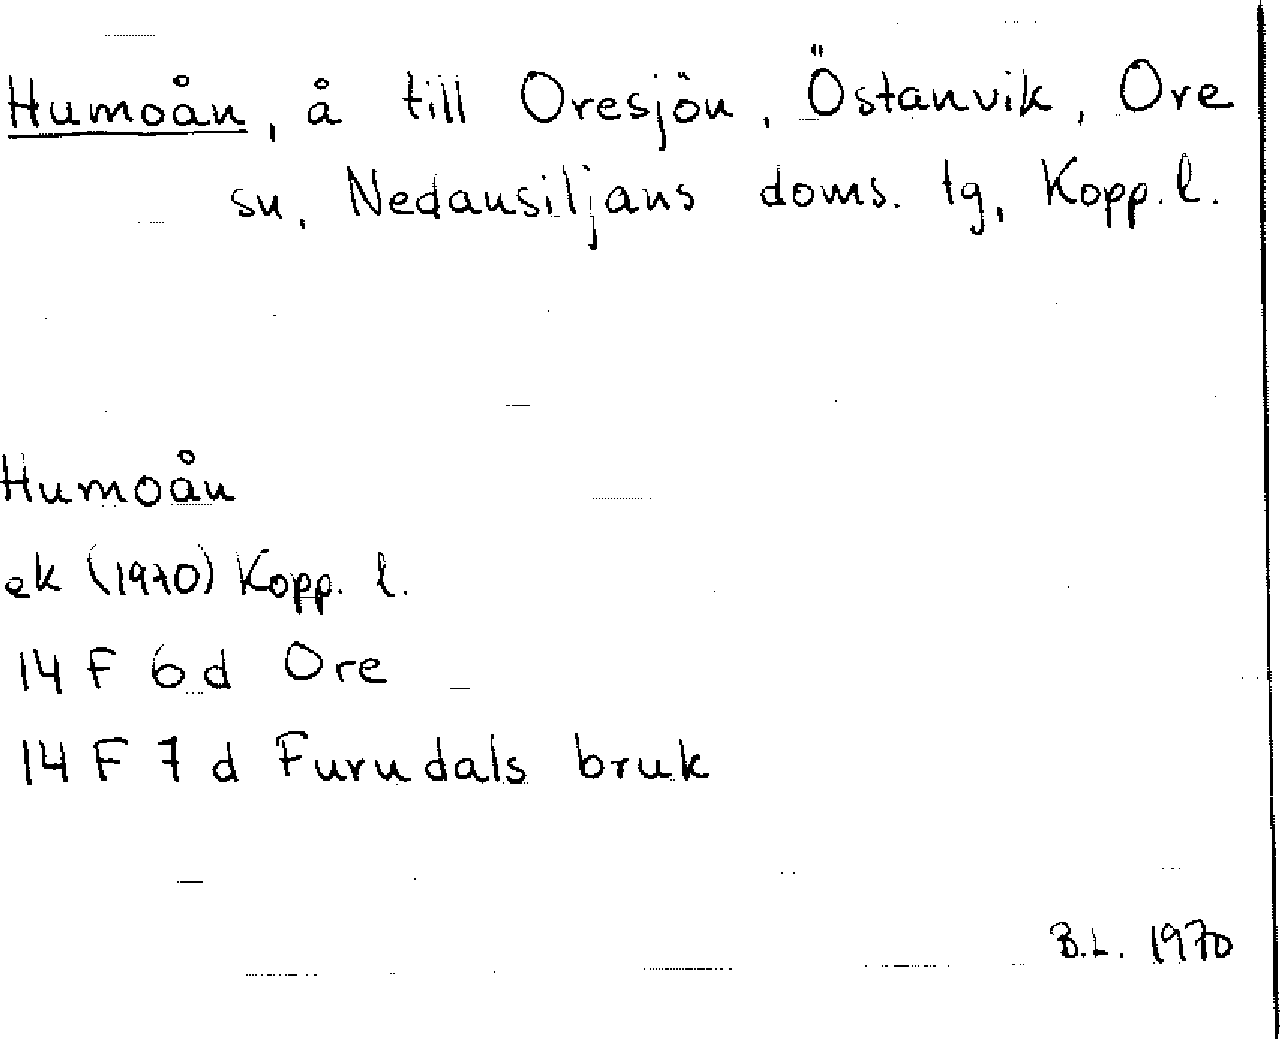 Humoån, å till Oresjön, Östanvik, Ore
sn, Nedansiljans doms. tg, Kopp. l.
Humoån
ek (1970) Kopp. l.
14 F 6 d Ore
14 F 7 d Furudals bruk
B.L. 1970